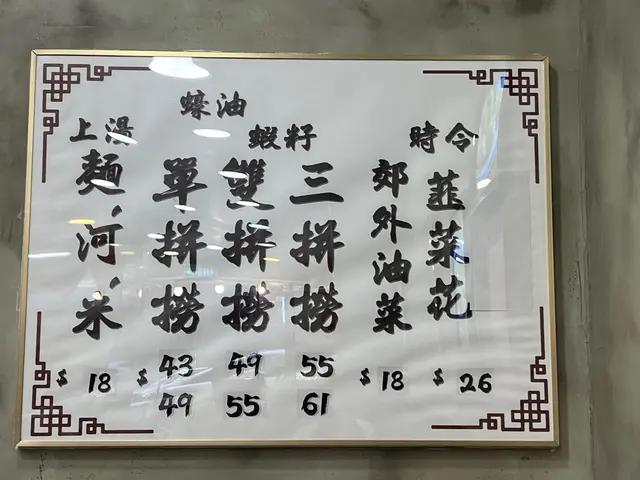 時令
韮菜花
$26
郊外油菜
$18
蠔油
蝦籽
三拼撈
55
61
雙拼撈
49
55
單拼撈
$43
49
上湯
麵、河、米
$18